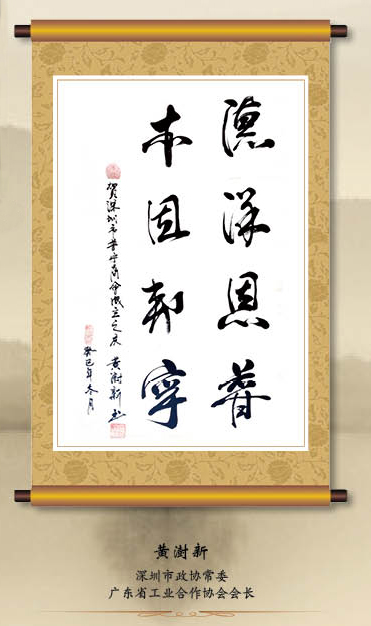 德洋恩普
本固邦寧
贺深圳市普宁商會成立之庆 黄澍新书
癸巳年冬月
黄澍新
深圳市政协常委
广东省工业合作协会会长